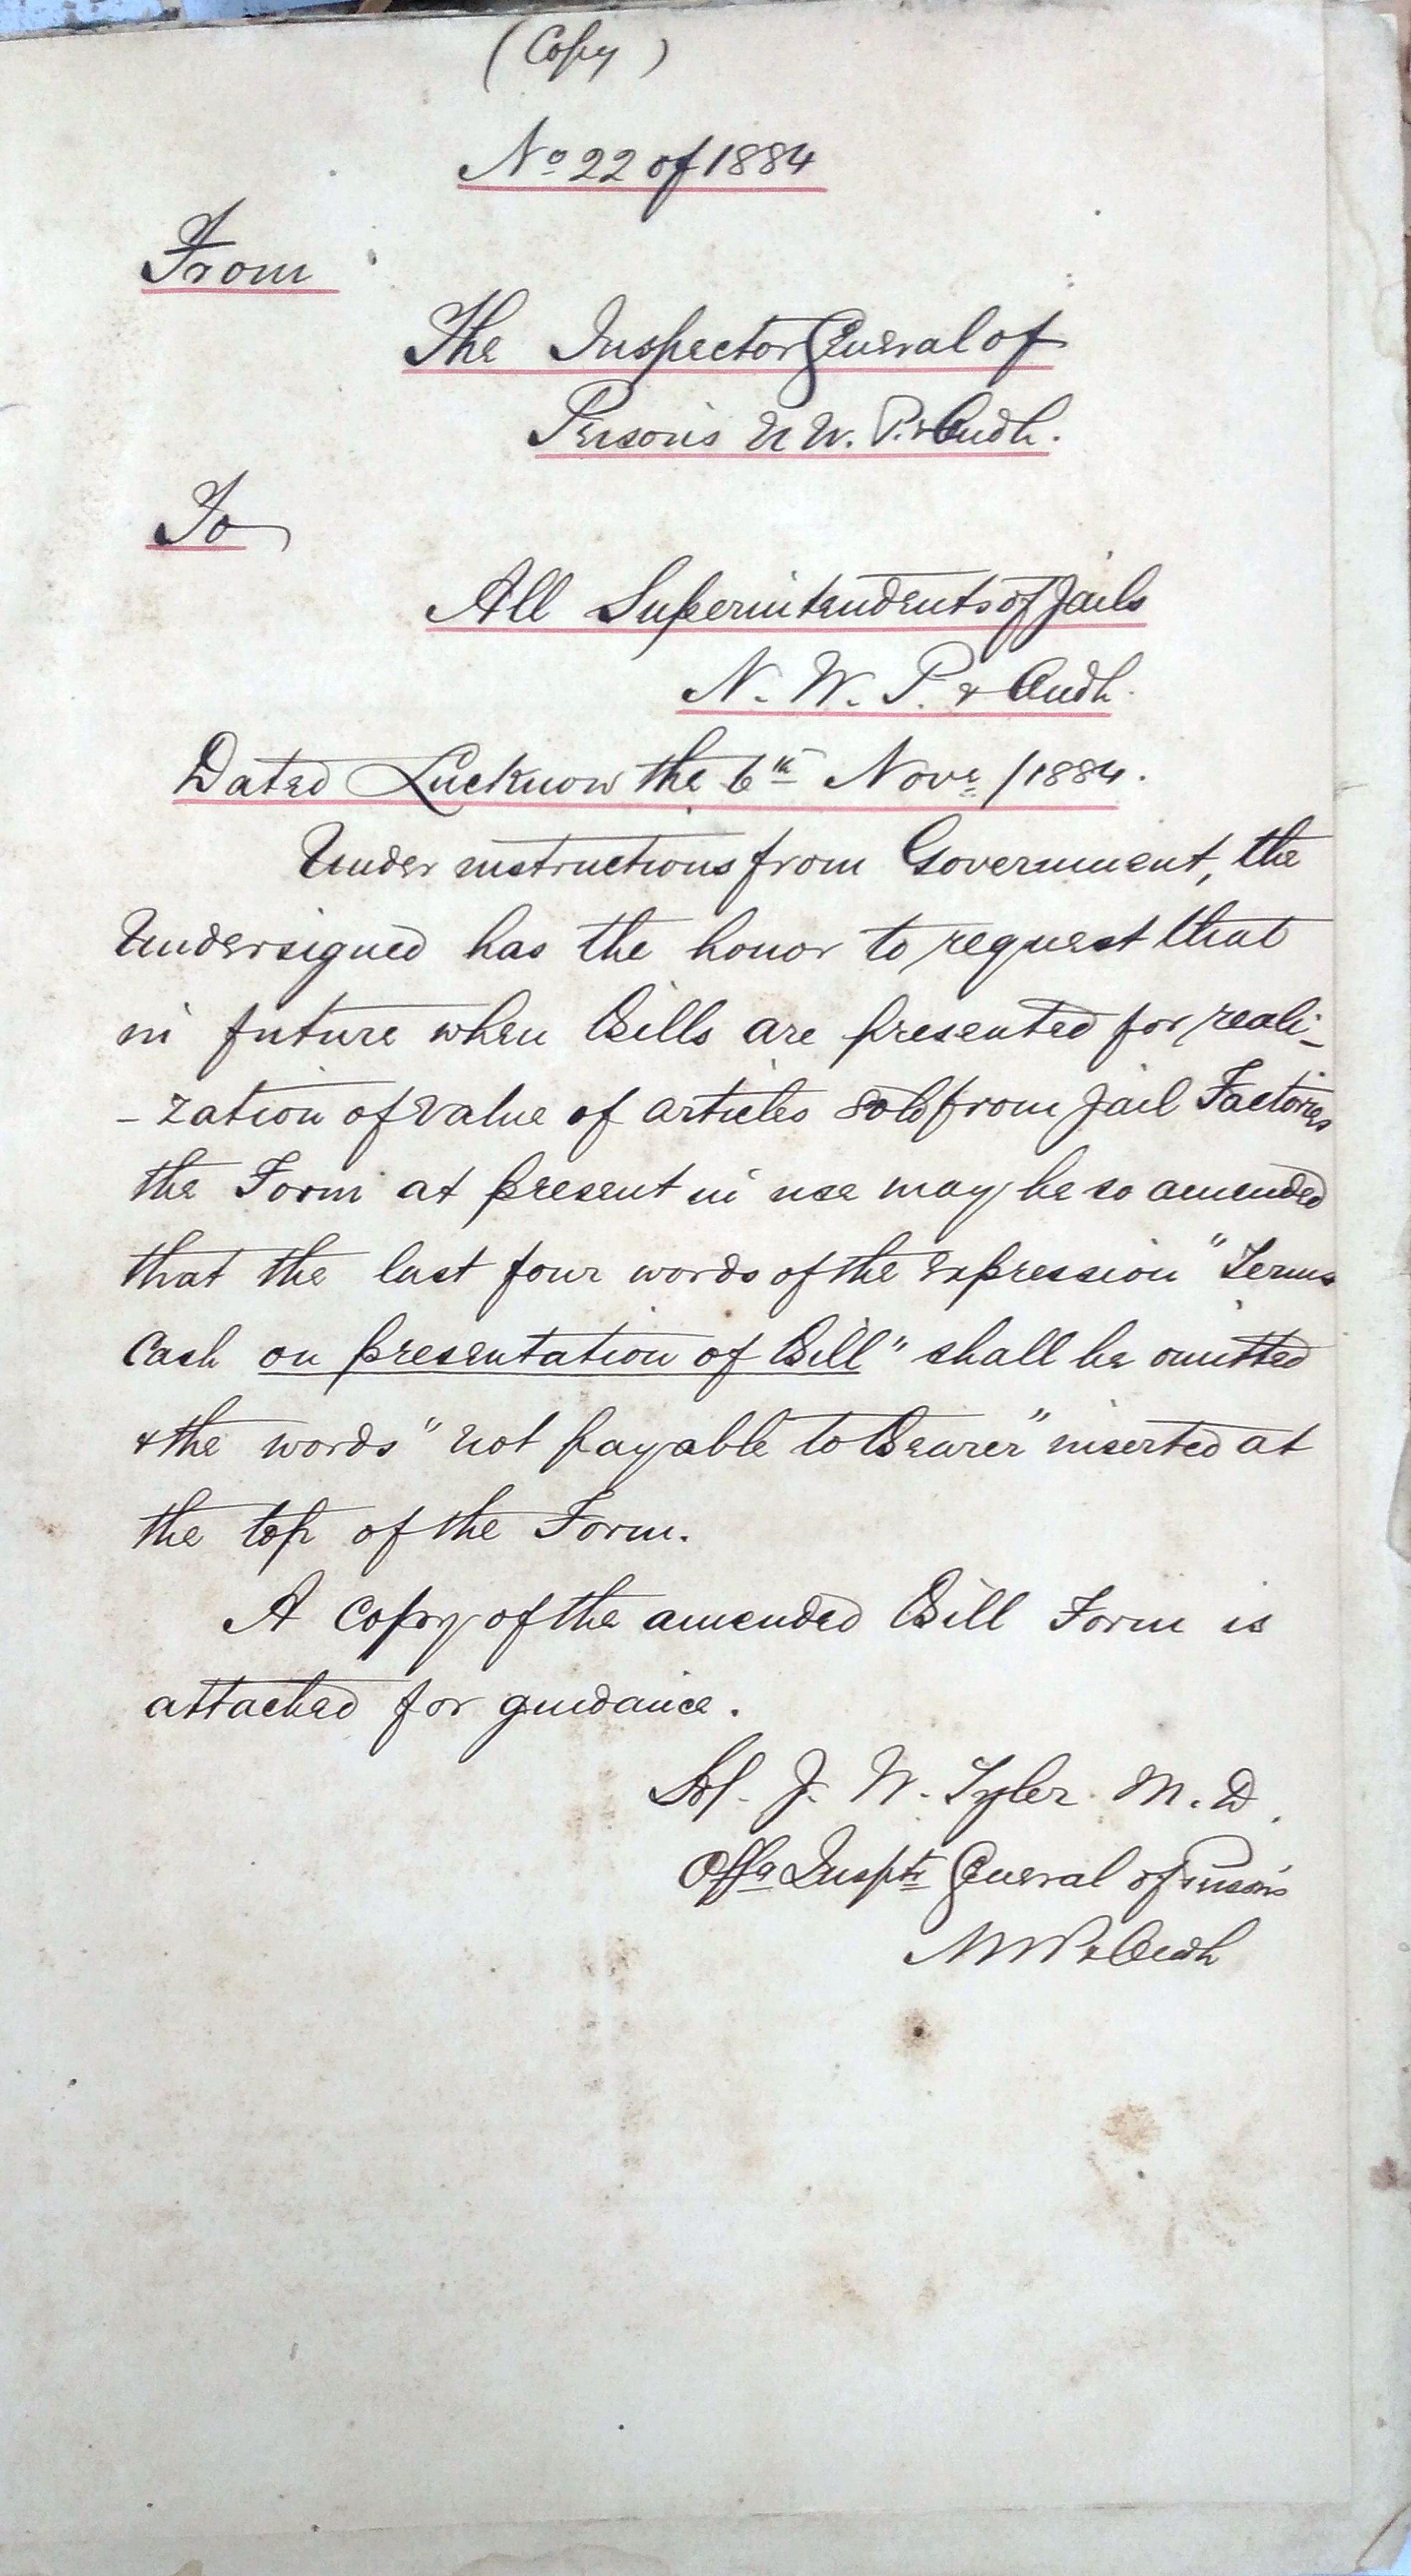 (Copy)
No 22 of 1884
From
The Inspector General of
Prisons N W. P. & Oudh.
To
All Superintendents of Jails
N. W. P. & Oudh.
Dated Lucknow the 6th Novr /1884.
Under instructions from Government, the
Undersigned has the honor to request that
in future when Bills are presented for reali-
-zation of value of articles sold from Jail Factories
the Form at present in use may be so amended
that the last four words of the expression "Terms
Cash on presentation of Bill" shall be omitted
& the words "not payable to Bearer" inserted at
the top of the Form.
A Copy of the amended Bill Form is
attached for guidance.
Sd/- J. W. Tyler M. D.
Offg Insptr General of Prisons
N W P & Oudh